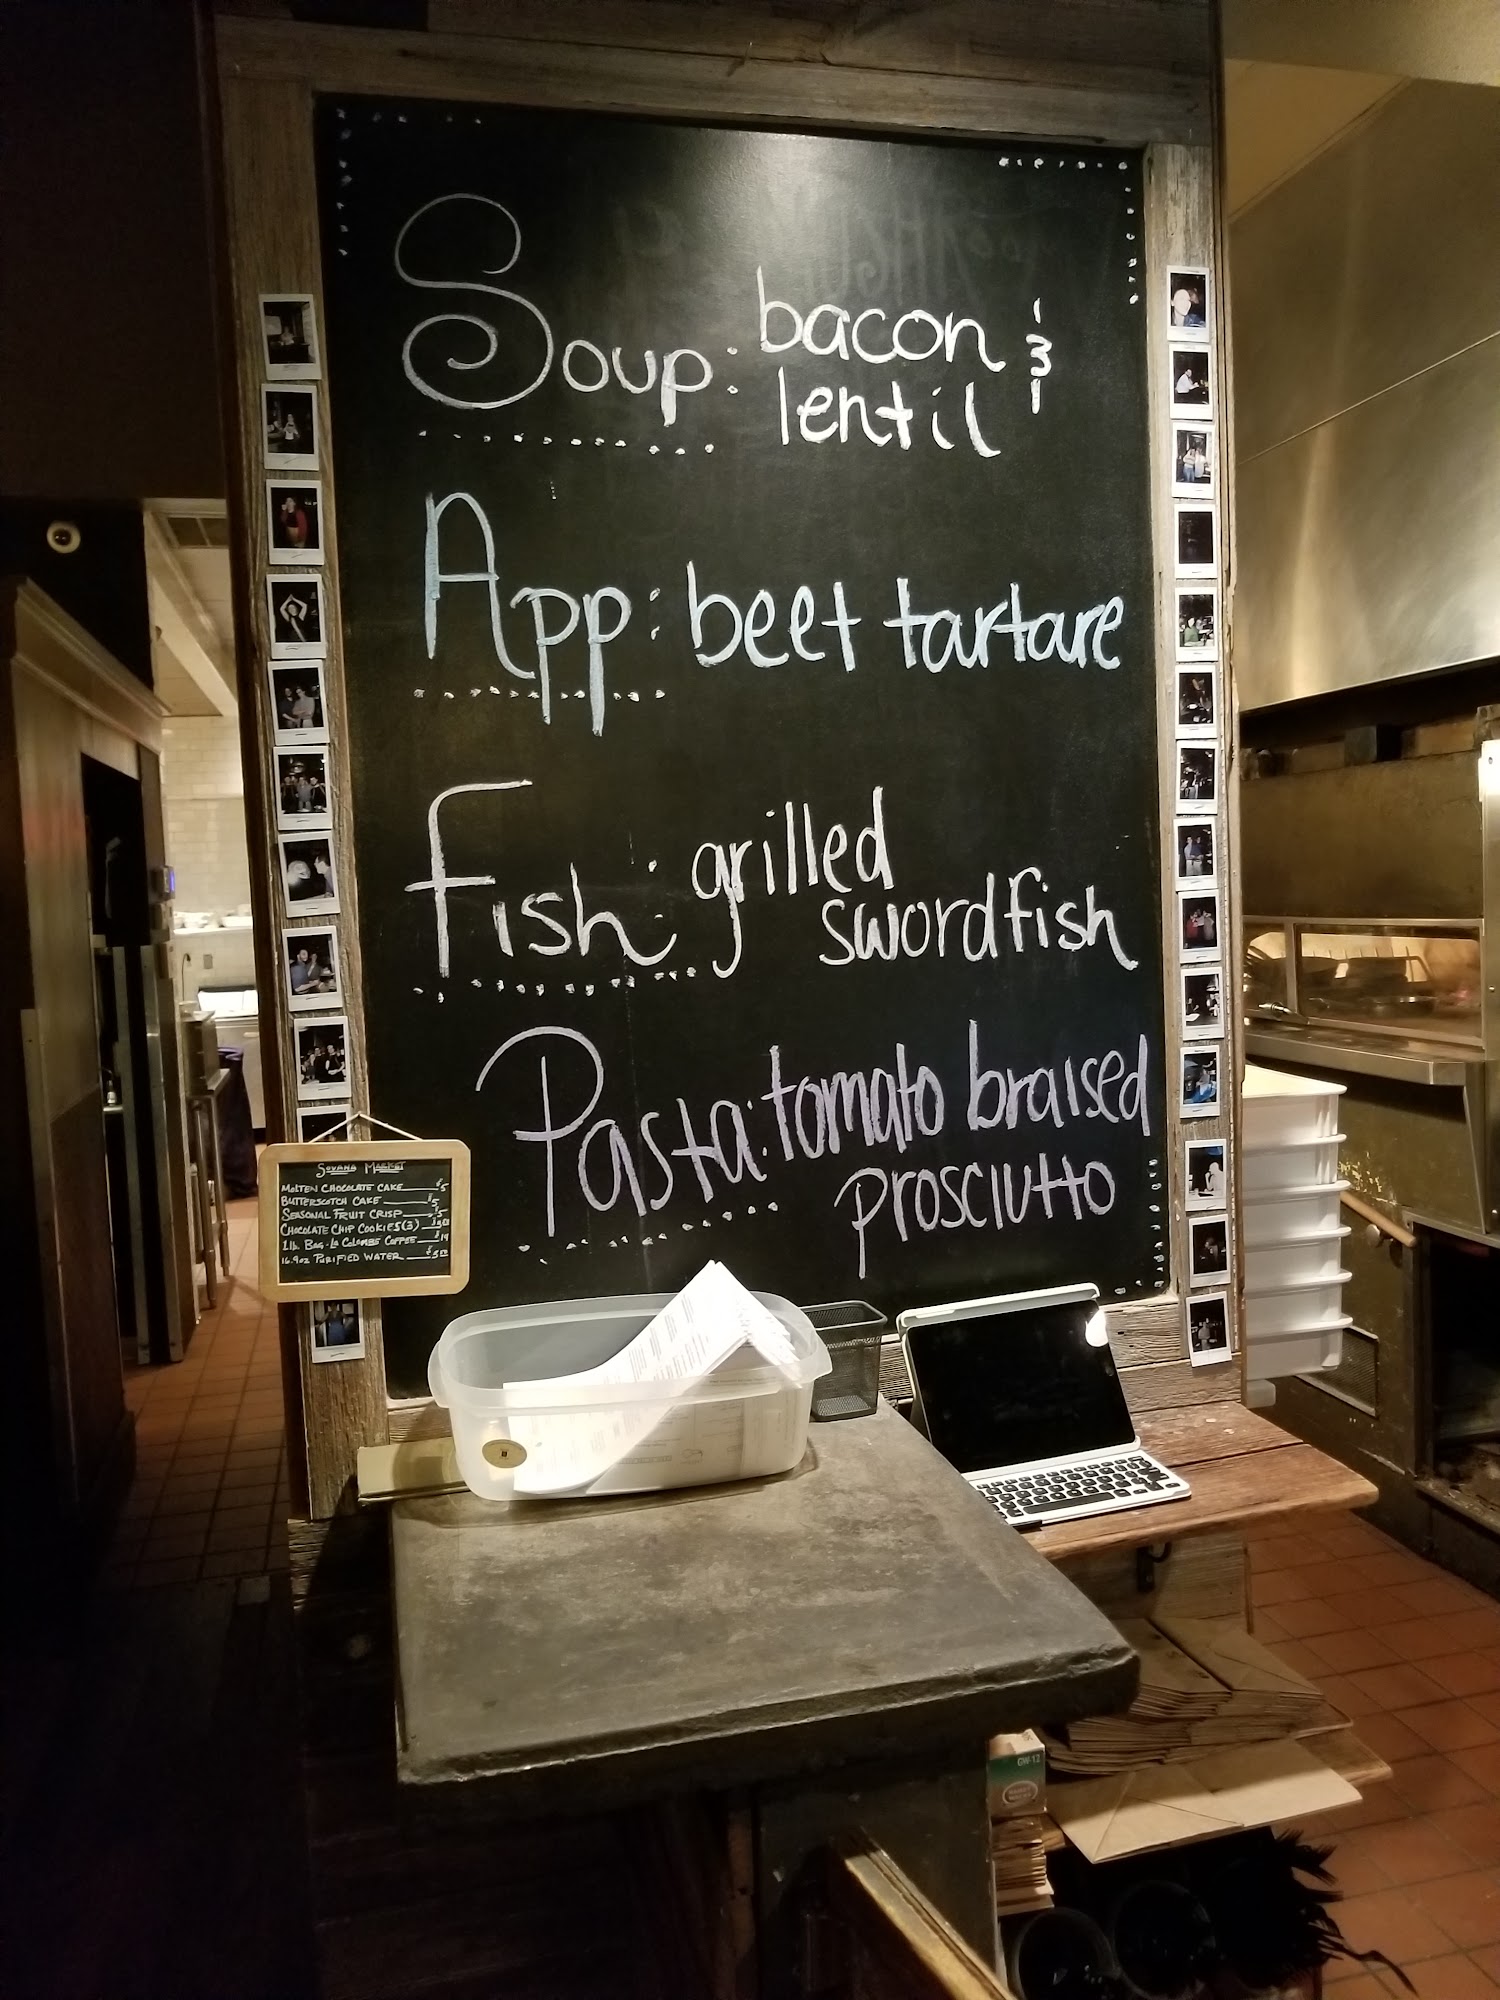 Soup: bacon &
lentil
App: beet tartare
Fish: grilled
swordfish
Pasta: tomato braised
prosciutto
SOVANA MARKET
MOLTEN CHOCOLATE CAKE $5
BUTTERSCOTCH CAKE $5
SEASONAL FRUIT CRISP $5
CHOCOLATE CHIP COOKIES (3)
1 lb. BAG - LA COLOMBE COFFEE $14
16.9 oz PURIFIED WATER
GW-12